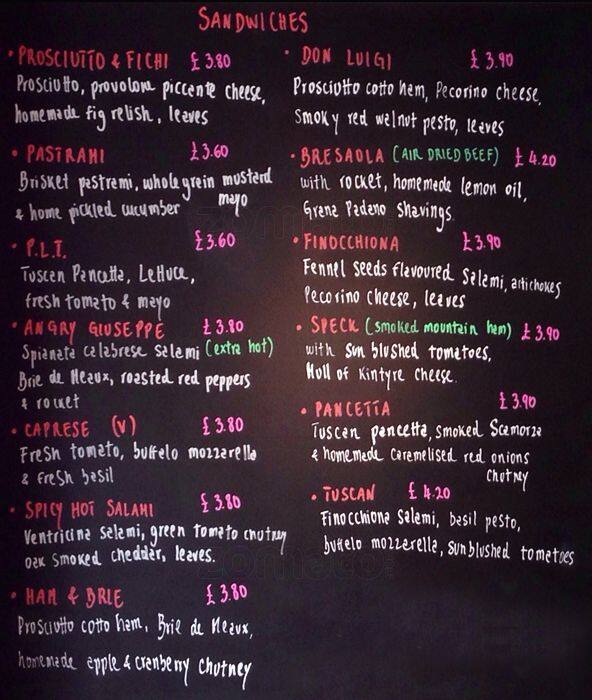 SANDWICHES
• PROSCIUTTO & FICHI £ 3.80
Prosciutto, provolone piccante cheese,
homemade fig relish, leaves
• PASTRAMI £3.60
Brisket pastrami, whole grain mustard
mayo
& home pickled cucumber
• P.L.T. £3.60
Tuscan Pancetta, Lettuce,
fresh tomato & mayo
• ANGRY GIUSEPPE £ 3.80
Spianata calabrese salami (extra hot)
Brie de Meaux, roasted red peppers
& rocket
• CAPRESE (V) £ 3.80
Fresh tomato, buffelo mozzarella
& fresh basil
• SPICY HOT SALAMI £ 3.80
Ventricina salami, green tomato chutney
oak smoked cheddar, leaves.
• HAM & BRIE £ 3.80
Prosciutto cotto ham, Brie de Meaux,
homemade apple & cranberry chutney
• DON LUIGI £ 3.90
Prosciutto cotto ham, Pecorino cheese,
Smoky red walnut pesto, leaves
• BRESAOLA (AIR DRIED BEEF) £ 4.20
with rocket, homemade lemon oil,
Grana Padano shavings.
• FINOCCHIONA £3.90
Fennel seeds flavoured salami, artichokes
Pecorino cheese, leaves
• SPECK (smoked mountain ham) £ 3.90
with sun blushed tomatoes,
Mull of Kintyre cheese.
• PANCETTA £ 3.90
Tuscan pancetta, smoked Scamorza
& homemade caramelised red onions
chutney
• TUSCAN £ 4.20
Finocchiona Salami, basil pesto,
buffelo mozzarella, sunblushed tomatoes
zomato